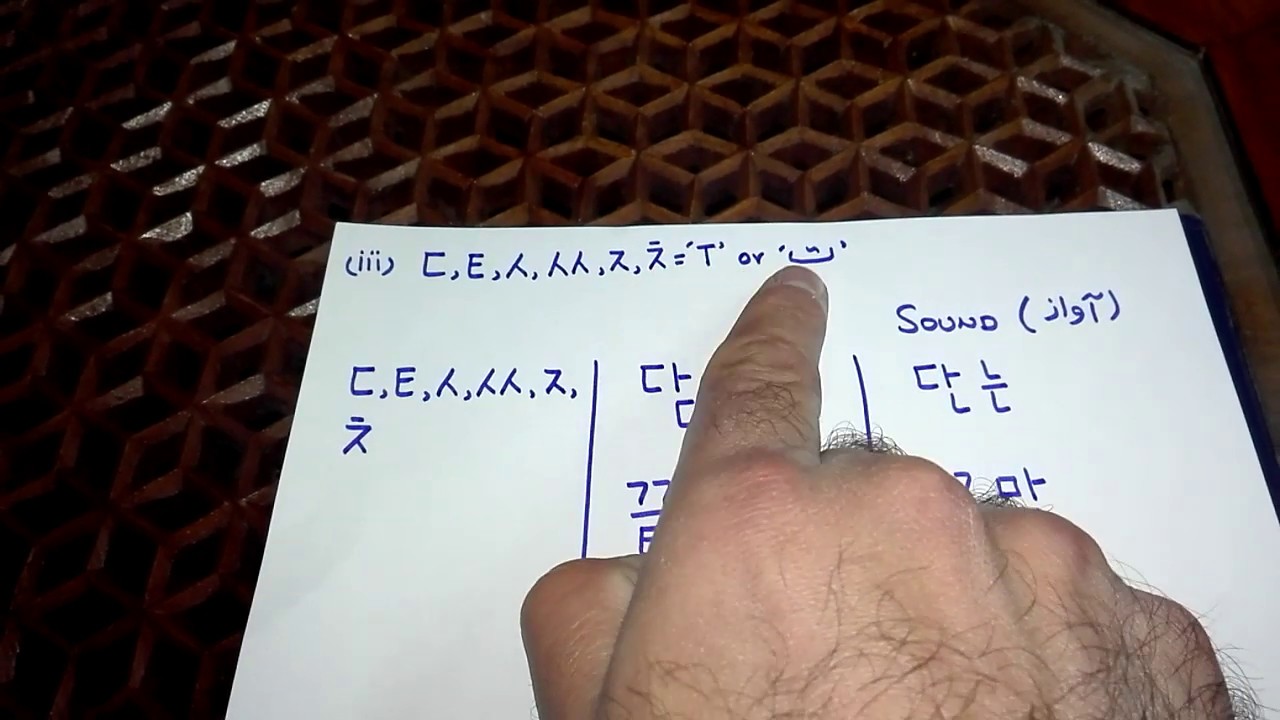 (iii) ㄷ,ㅌ,ㅅ,ㅆ,ㅈ,ㅊ='T' or 'ت'
SOUND (آواز)
ㄷ,ㅌ,ㅅ,ㅆ,ㅈ,
ㅊ
단는
마